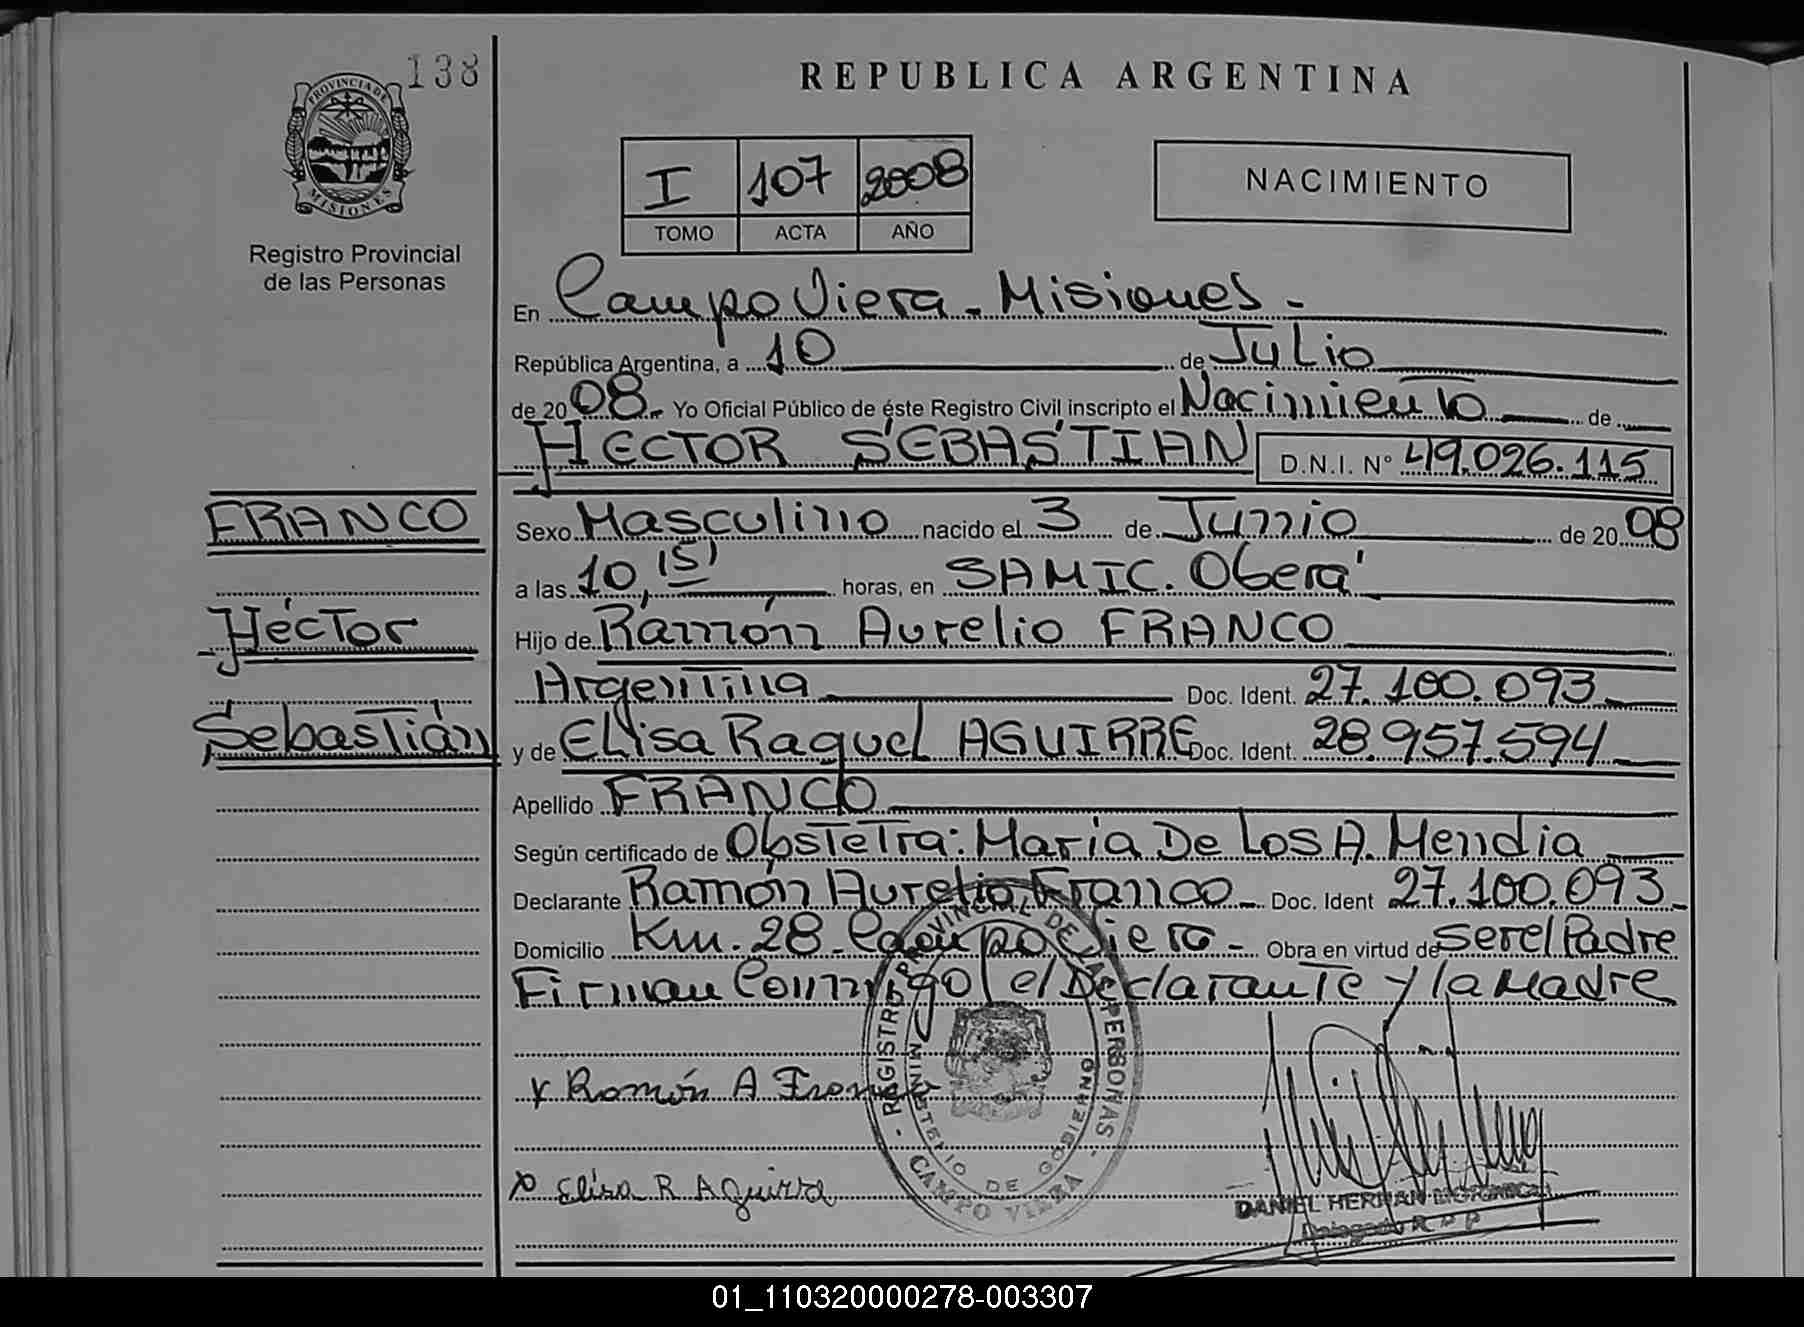 138
PROVINCIA DE
MISIONES
Registro Provincial
de las Personas
REPUBLICA ARGENTINA
I 107 2008
TOMO ACTA AÑO
NACIMIENTO
En Campo Viera - Misiones -
República Argentina, a 10 de Julio
de 2008 - Yo Oficial Público de éste Registro Civil inscripto el Nacimiento de
HECTOR SEBASTIAN D.N.I. N° 49.026.115
FRANCO
Héctor
Sebastián
Sexo Masculino nacido el 3 de Junio de 2008
a las 10,15' horas, en SAMIC. Oberá
Hijo de Ramón Aurelio FRANCO
Argentina Doc. Ident. 27.100.093
y de Elisa Raquel AGUIRRE Doc. Ident. 28.957.594
Apellido FRANCO
Según certificado de Obstetra: María De Los A. Mendia
Declarante Ramón Aurelio Franco - Doc. Ident 27.100.093
Domicilio Km. 28 - Campo Viera - Obra en virtud de ser el Padre
Firman Conmigo el Declarante y la Madre
x Ramón A Franco
x Elisa R Aguirre
- REGISTRO PROVINCIAL DE LAS PERSONAS -
MINISTERIO DE GOBIERNO
CAMPO VIERA
DANIEL HERNAN
Delegado R P P
01_110320000278-003307